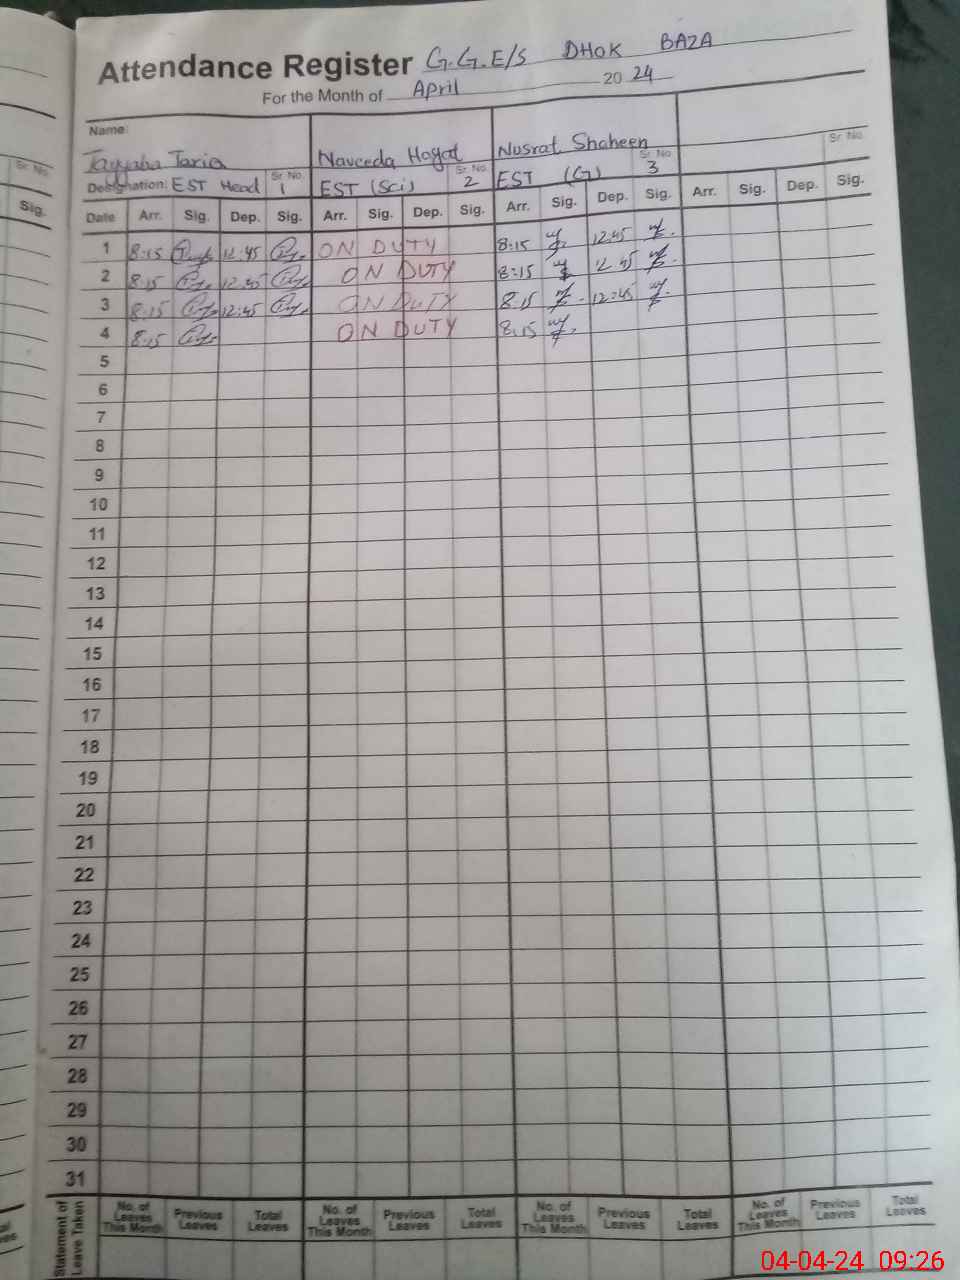 Attendance Register G.G.E/S DHOK BAZA
For the Month of April 2024
Name:
Tayyaba Tariq Naveeda Hayat Nusrat Shaheen
Designation: EST Head Sr. No. 1 EST (Sci) Sr. No. 2 EST (G) Sr. No. 3 Sr. No.
Date Arr. Sig. Dep. Sig. Arr. Sig. Dep. Sig. Arr. Sig. Dep. Sig. Arr. Sig. Dep. Sig.
1 8:15 12:45 ON DUTY 8:15 12:45
2 8:15 12:45 ON DUTY 8:15 12:45
3 8:15 12:45 ON DUTY 8:15 12:45
4 8:15 ON DUTY 8:15
5
6
7
8
9
10
11
12
13
14
15
16
17
18
19
20
21
22
23
24
25
26
27
28
29
30
31
Statement of Leave Taken No. of Leaves This Month Previous Leaves Total Leaves No. of Leaves This Month Previous Leaves Total Leaves No. of Leaves This Month Previous Leaves Total Leaves No. of Leaves This Month Previous Leaves Total Leaves
Sr. No.
Sig.
04-04-24 09:26